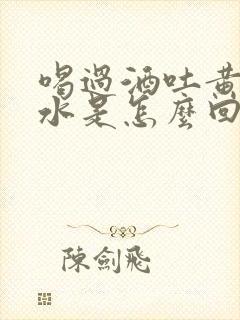 喝過酒吐黄
水是怎麼回
陳劍飛